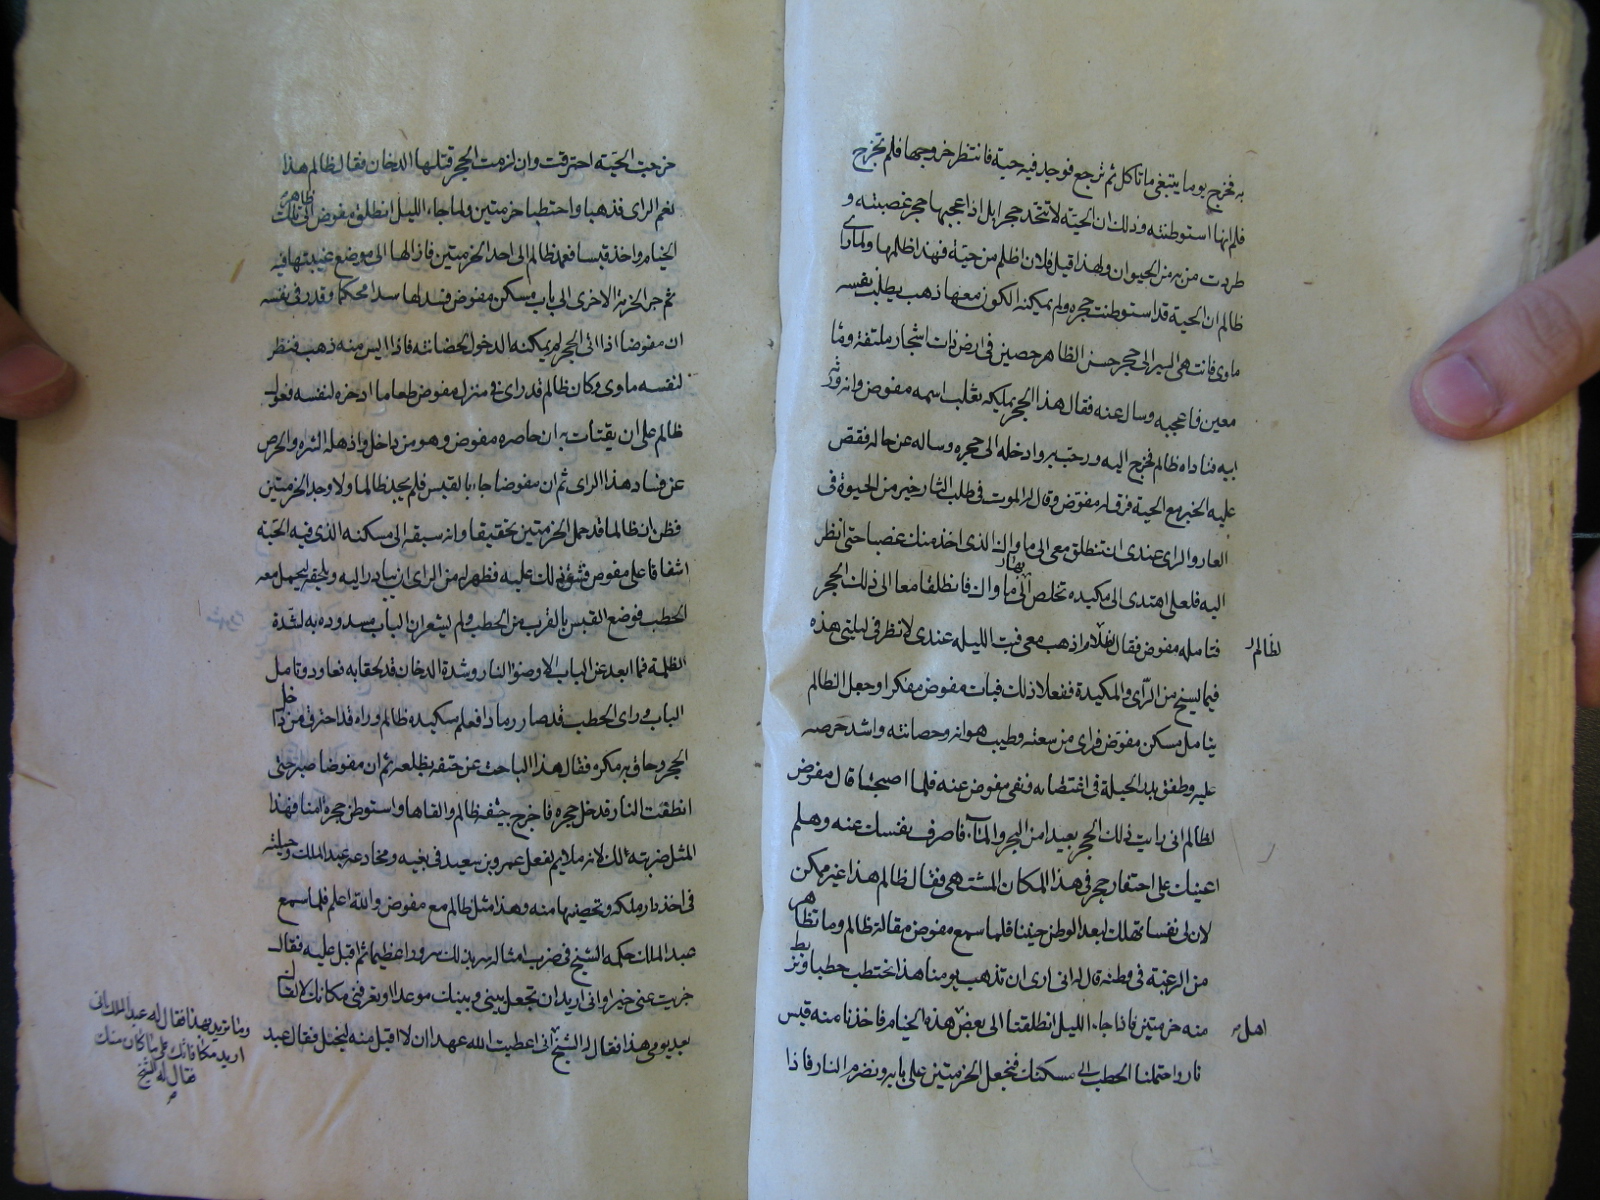 به فخرج يوما يبتغى ما تاكل ثم ترجع فوجد فيه حية فانتظر خروجها فلم تخرج
فلم انها استوطنته وذلك ان الحية لا تتخذ حجرا بل اذا اعجبها حجر غصبته و
طردت من به من الحيوان ولهذا قيل فلان اظلم من حية فهذا ظلمها ولما راى
ظالم ان الحية قد استوطنت حجره ولم يمكنه الكون معها ذهب يطلب لنفسه
ماوى فانتهى السير الى حجر حسن الظاهر حصين فى ارض ذات اشجار ملتفة وما
معين فاعجبه وسال عنه فقال هذا الحجر يملكه ثعلب اسمه مفوض وانه ورثه
ابيه فناداه ظالم فخرج اليه ورحب به وادخله الى حجره وساله عن حاله فقص
عليه الخبر مع الحية فرق له مفوض وقال له الموت فى طلب الثار خير من الحيوة فى
العار والراى عندى ان تنطلق معى الى ماواك الذى اخذ منك غصبا حتى انظر
اليه فلعلى اهتدى الى مكيدة تخلص الى ماواك فانطلقا معا الى ذلك الحجر
فتامله مفوض فقال لظالم اذهب معى فبت الليله عندى لانظر فى ليلتى هذه
لظالم
فيما يسنح من الراى والمكيدة ففعلا ذلك فبات مفوض مفكرا وجعل الظالم
يتامل مسكن مفوض فراى من سعته وطيب هوائه وحصانته واشتد حرصه
عليه وطفق يدبر الحيلة فى اغتصابه ونفى مفوض عنه فلما اصبحنا قال مفوض
لظالم انى رايت ذلك الحجر بعيدا من الشجر والماء فاصرف نفسك عنه وهلم
اعينك على احتفار حجر فى هذا المكان المشتهى فقال ظالم هذا غير ممكن
لان لى نفسا تهلك لبعد الوطن حنينا فلما سمع مفوض مقالة ظالم وما تظاهر
من الرغبة فى وطنه قال له انى ارى ان تذهب يومنا هذا نحتطب حطبا ونربط
منه حزمتين فاذا جاء الليل انطلقنا الى بعض هذه الخيام فاخذنا منه قبس
اهل
نار واحتملنا الحطب الى مسكنك فنجعل الحزمتين على بابه ونضرم النار فاذا
خرجت الحية احترقت وان لزمت الحجر قتلها الدخان فقال ظالم هذا
نعم الراى فذهبا واحتطبا حزمتين ولما جاء الليل انطلق مفوض الى تلك
ظاهر
الخيام واخذ قبسا فعمد ظالم الى احد الحزمتين فازالها الى موضع غيبتها فيه
ثم جر الحزمة الاخرى الى باب مسكن مفوض فسدلها سدا محكما وقدر فى نفسه
ان مفوضا اذا اتى الحجر لم يمكنه الدخول لحصانته فاذا ايس منه ذهب فنظر
لنفسه ماوى وكان ظالم قد راى فى منزل مفوض طعاما ادخره لنفسه فعول
ظالم على ان يقتات به ان حاصره مفوض وهو من داخل واذهله الشره والحرص
عن فساد هذا الراى ثم ان مفوضا جاء بالقبس فلم يجد ظالما ولا وجد الحزمتين
فظن ان ظالما قد حمل الحزمتين تخفيفا وانه سبقه الى مسكنه الذى فيه الحية
اشفاقا على مفوض فشق ذلك عليه فظهر له من الراى ان يبادر اليه ويلحقه ليحمل معه
الحطب فوضع القبس بالقرب من الحطب ولم يشعر ان الباب مسدوده به لشدة
الظلمة فما ابعد عن الباب الا وضوء النار وشدة الدخان قد لحقا به فعاود وتامل
الباب وراى الحطب قد صار رمادا فعلم مكيده ظالم وراه قد احترق من داخل
الحجر وحاق به مكره فقال هذا الباحث عن حتفه بظلفه ثم ان مفوضا صبر حتى
انطفئت النار فدخل حجره فاخرج جيفة ظالم والقاها واستوطن حجره امنا فهذا
المثل ضربته لك لانه ملايم لفعل عمرو بن سعيد فى بغيه ومخادعة عبد الملك وحيلته
فى اخذ دار ملكه وتحصنها منه وهذا مثل ظالم مع مفوض والله اعلم فلما سمع
عبد الملك حكمه الشيخ فى ضرب امثاله سر بذلك سرورا عظيما ثم اقبل عليه فقال
جزيت عنى خيرا وانى اريد ان تجعل بينى وبينك موعدا وتعرفنى مكانك لالقاك
بعد يومى هذا فقال له الشيخ انى اعطيت الله عهدا ان لا اقبل منه لبخل فقال عبد
وما تريد بهذا فقال له عبد الملك انى
اريد مكافاتك على ما كان منك
فقال له الشيخ